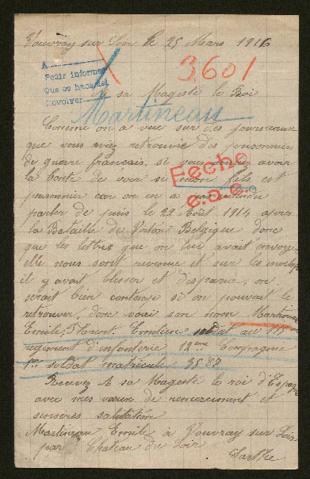 Vouvray sur Loir le 25 Mars 1916
3601
A
Pedir informes
que se haga al
devolver
A sa Magesté le Roi
Martineau
Comme on a vue sur des journeaux
que vous aviez retrouvé des prisonniers
de guerre francais, si vous auriez avoir
la bonté de voir si mon fils est
prisonnier car on en a
parler de puis le 22 Aout 1914 apres
la Bataille de Belgique donc
que les lettres que on lui avait envoyé
elle nous sont revenue et sur les
il y avait blesser et disparue, on
serait bien contense si on pouvait le
retrouver, donc voici son nom Martineau
Fecho
e.o.e.
Emile Florent Emilien soldat au
regiment d'infanterie 12eme Compagnie
1er soldat matricule 3587
Recevez A sa Magesté le roi d'Espagne
avec mes vœux de remerciement et
sinseres salutation
Martineau Emile à Vouvray sur Loir
par Chateau du Loir
Sarthe